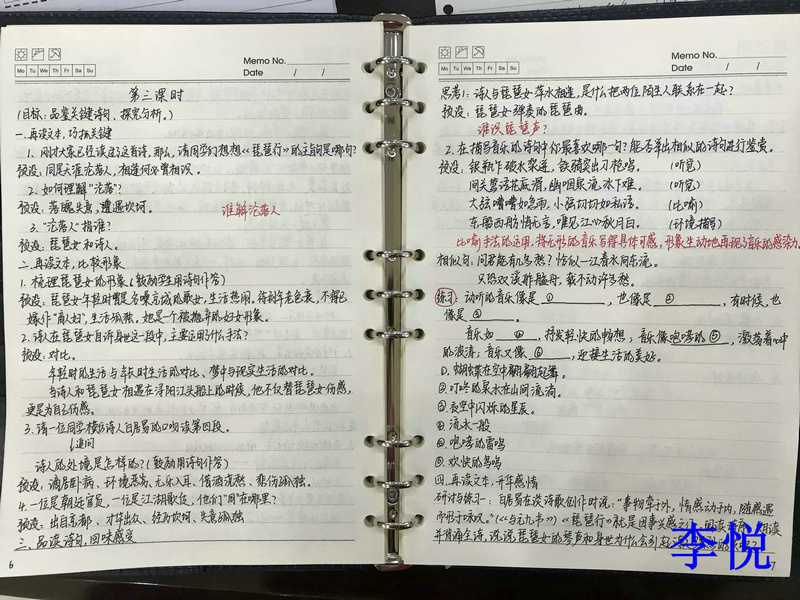 Memo No.
Mo Tu We Th Fr Sa Su
Date / /
第三课时
(目标：品鉴关键诗句、探究分析。)
一.再读文本，巧抓关键
1. 刚才大家已经读过了这首诗，那么，请同学们想想《琵琶行》的主旨句是哪句？
预设：同是天涯沦落人，相逢何必曾相识。
2. 如何理解"沦落"？
预设：落魄失意，遭遇坎坷。
谁解沦落人
3. "沦落人"指谁？
预设：琵琶女和诗人。
二.再读文本，比较形象
1. 梳理琵琶女的形象（鼓励学生用诗句作答）
预设：琵琶女年轻时曾是名噪京城的歌女，生活热闹，待到年老色衰，不得已
嫁作"商人妇"，生活孤独，她是个被抛弃的妇女形象。
2. 诗人在琵琶女自诉身世这一段中，主要运用了什么手法？
预设：对比。
年轻时的生活与年长时生活的对比、梦中与现实生活的对比。
当诗人和琵琶女相遇在浔阳江头船上的时候，他不仅替琵琶女伤感，
更是为自己伤感。
3. 请一位同学模仿诗人白居易的口吻读第四段。
追问
诗人的处境是怎样的？（鼓励用诗句作答）
预设：谪居卧病、环境恶劣、无乐入耳、借酒浇愁、悲伤孤独。
4. 一位是朝廷官员，一位是江湖歌女，他们"同"在哪里？
预设：出自京都、才华出众、经历坎坷、失意孤独
三、品读诗句，回味感受
6
Memo No.
Mo Tu We Th Fr Sa Su
Date / /
思考1：诗人与琵琶女萍水相逢，是什么把两位陌生人联系在一起？
预设：琵琶女弹奏的琵琶曲。
谁识琵琶声？
2. 在描写音乐的诗句中你最喜欢哪一句？能否举出相似的诗句进行鉴赏。
预设：银瓶乍破水浆迸，铁骑突出刀枪鸣。（听觉）
间关莺语花底滑，幽咽泉流冰下难。（听觉）
大弦嘈嘈如急雨，小弦切切如私语。（比喻）
东船西舫悄无言，唯见江心秋月白。（环境描写）
比喻手法的运用，将无形的音乐写得具体可感，形象生动地再现了音乐的感染力。
相似句：问君能有几多愁？恰似一江春水向东流。
只恐双溪舴艋舟，载不动许多愁。
练习：动听的音乐像是①，也像是②，有时候，也
像是③。
音乐如④，抒发轻快的畅想，音乐像咆哮的⑤，激荡着心中
的波涛；音乐又像⑥，迎接生活的美好。
①.蝴蝶在空中翩翩起舞。
②.叮咚的泉水在山间流淌。
③.夜空中闪烁的星辰。
④.流水一般
⑤.咆哮的雷鸣
⑥.欢快的鸟鸣
四.再读文本，升华感情
研讨与练习：白居易在谈诗歌创作时说："事物牵于外，情感动于内，随感遇
而形于咏叹。"（《与元九书》）《琵琶行》就是因事兴感之
并背诵全诗，说说琵琶女的琴声和身世为什么会引起
7
李悦